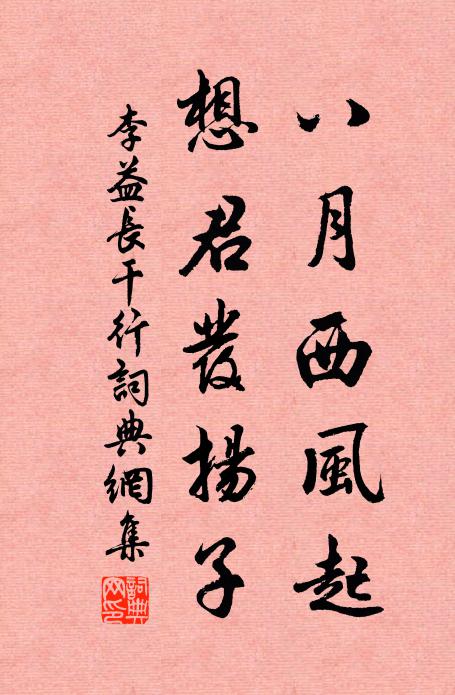 八月西風起
想君發揚子
李益長干行詞典網集
詞典網印